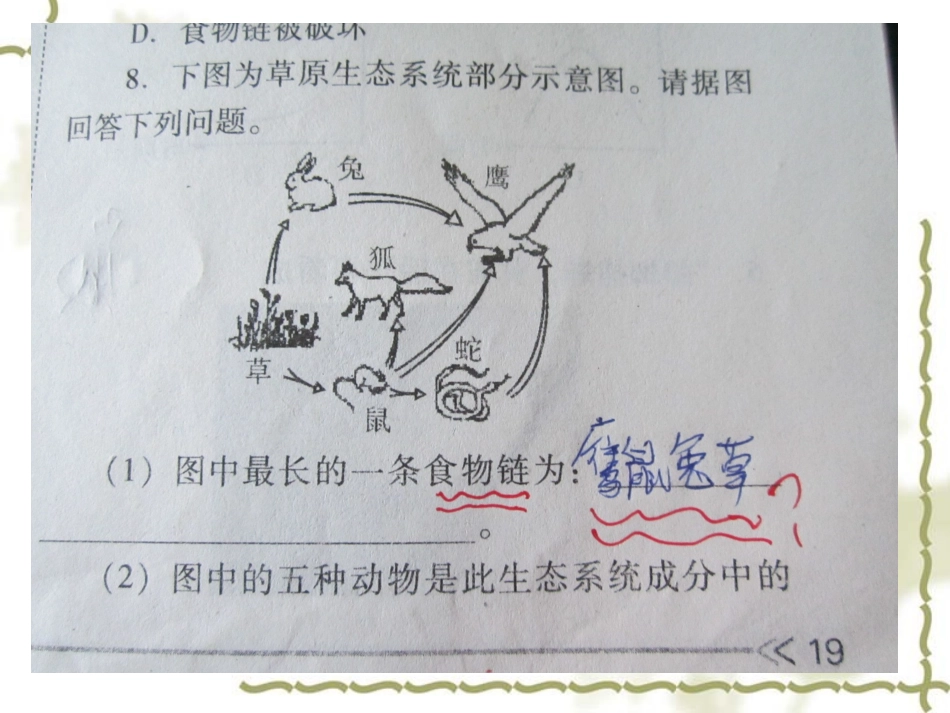 D. 食物链被破坏
8. 下图为草原生态系统部分示意图。请据图
回答下列问题。
兔
鹰
狐
草
蛇
鼠
(1) 图中最长的一条食物链为：鹰鼠兔草
?
。
(2) 图中的五种动物是此生态系统成分中的
<< 19